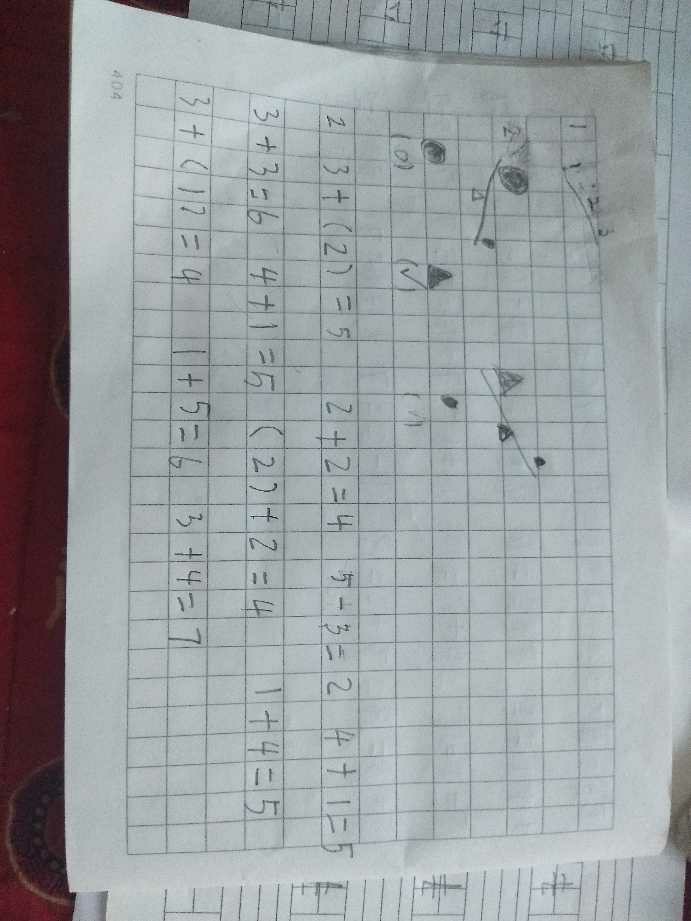 1 1 2 3
2
(0) (✓) (✓)
2 3+(2)=5 2+2=4 5-3=2 4+1=5
3+3=6 4+1=5 (2)+2=4 1+4=5
1+5=6 3+4=7
404